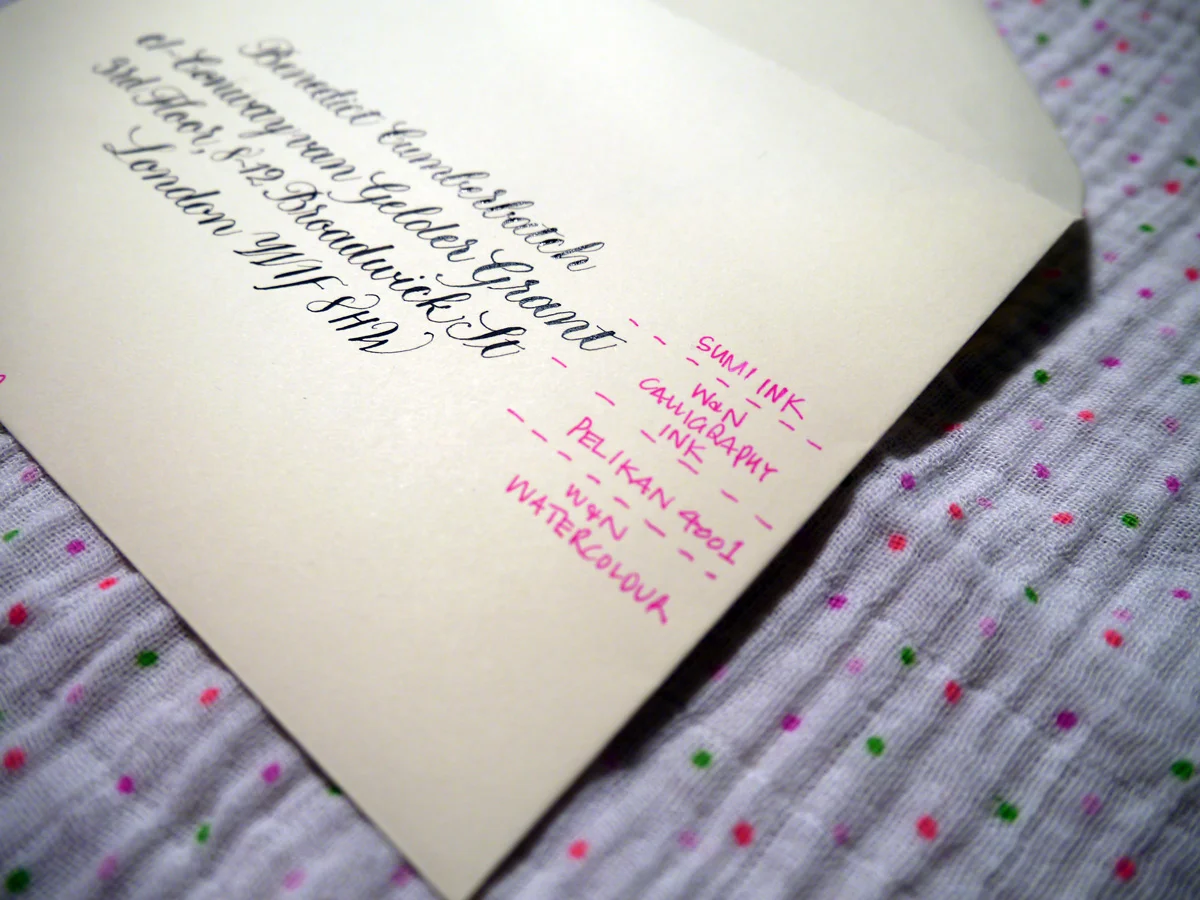 Benedict Cumberbatch
c/-Conway van Gelder Grant
3rd Floor, 8-12 Broadwick St
London W1F 8HW
SUMI INK
W&N
CALLIGRAPHY
INK
PELIKAN 4001
W&N
WATERCOLOUR